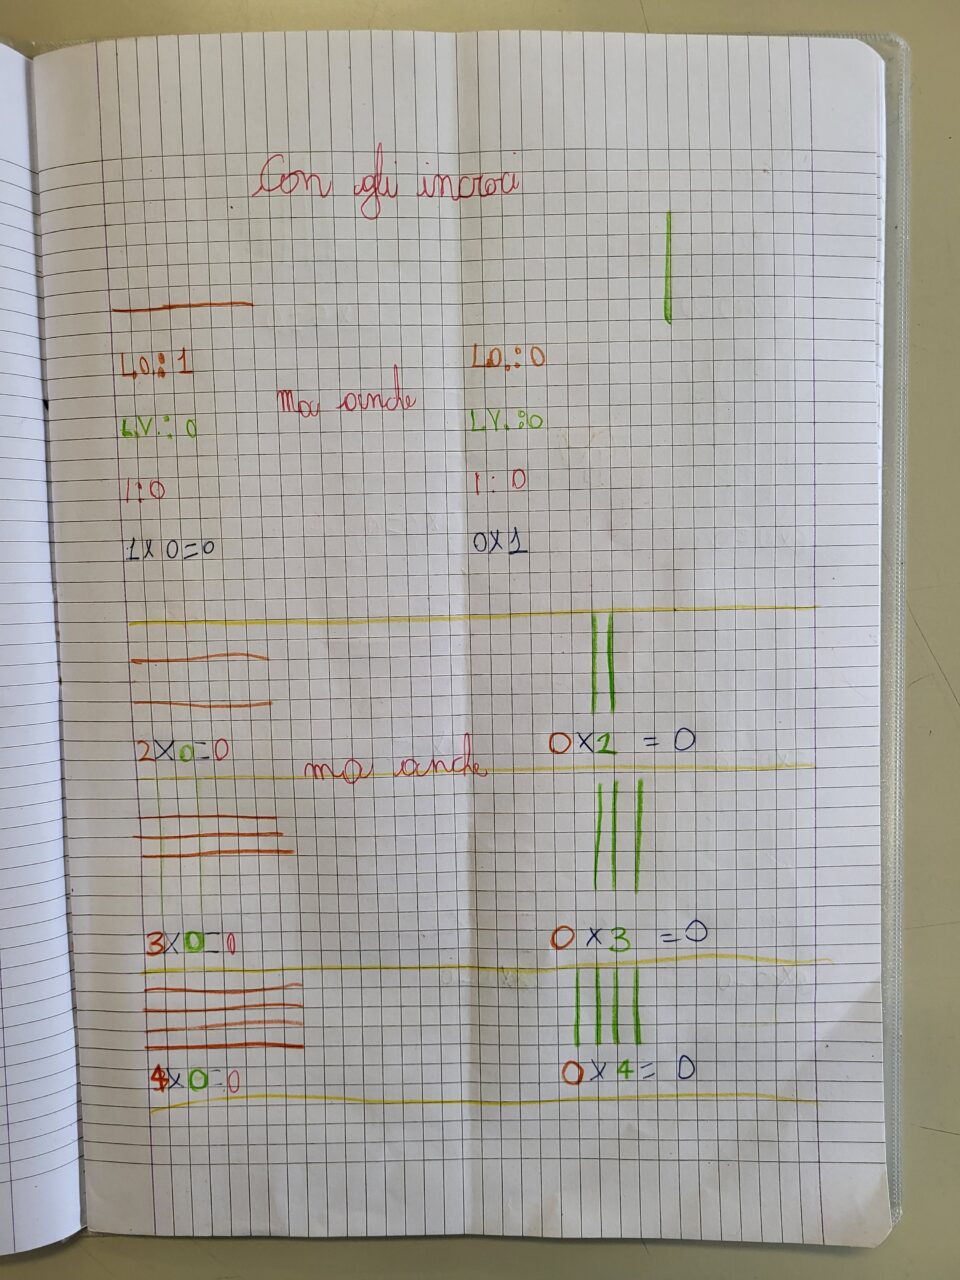 Con gli incroci
L.O.: 1
L.V.: 0
I: 0
1 x 0 = 0
ma anche
L.O.: 0
L.V.: 0
I: 0
0 x 1
2 x 0 = 0
ma anche
0 x 2 = 0
3 x 0 = 0
0 x 3 = 0
4 x 0 = 0
0 x 4 = 0